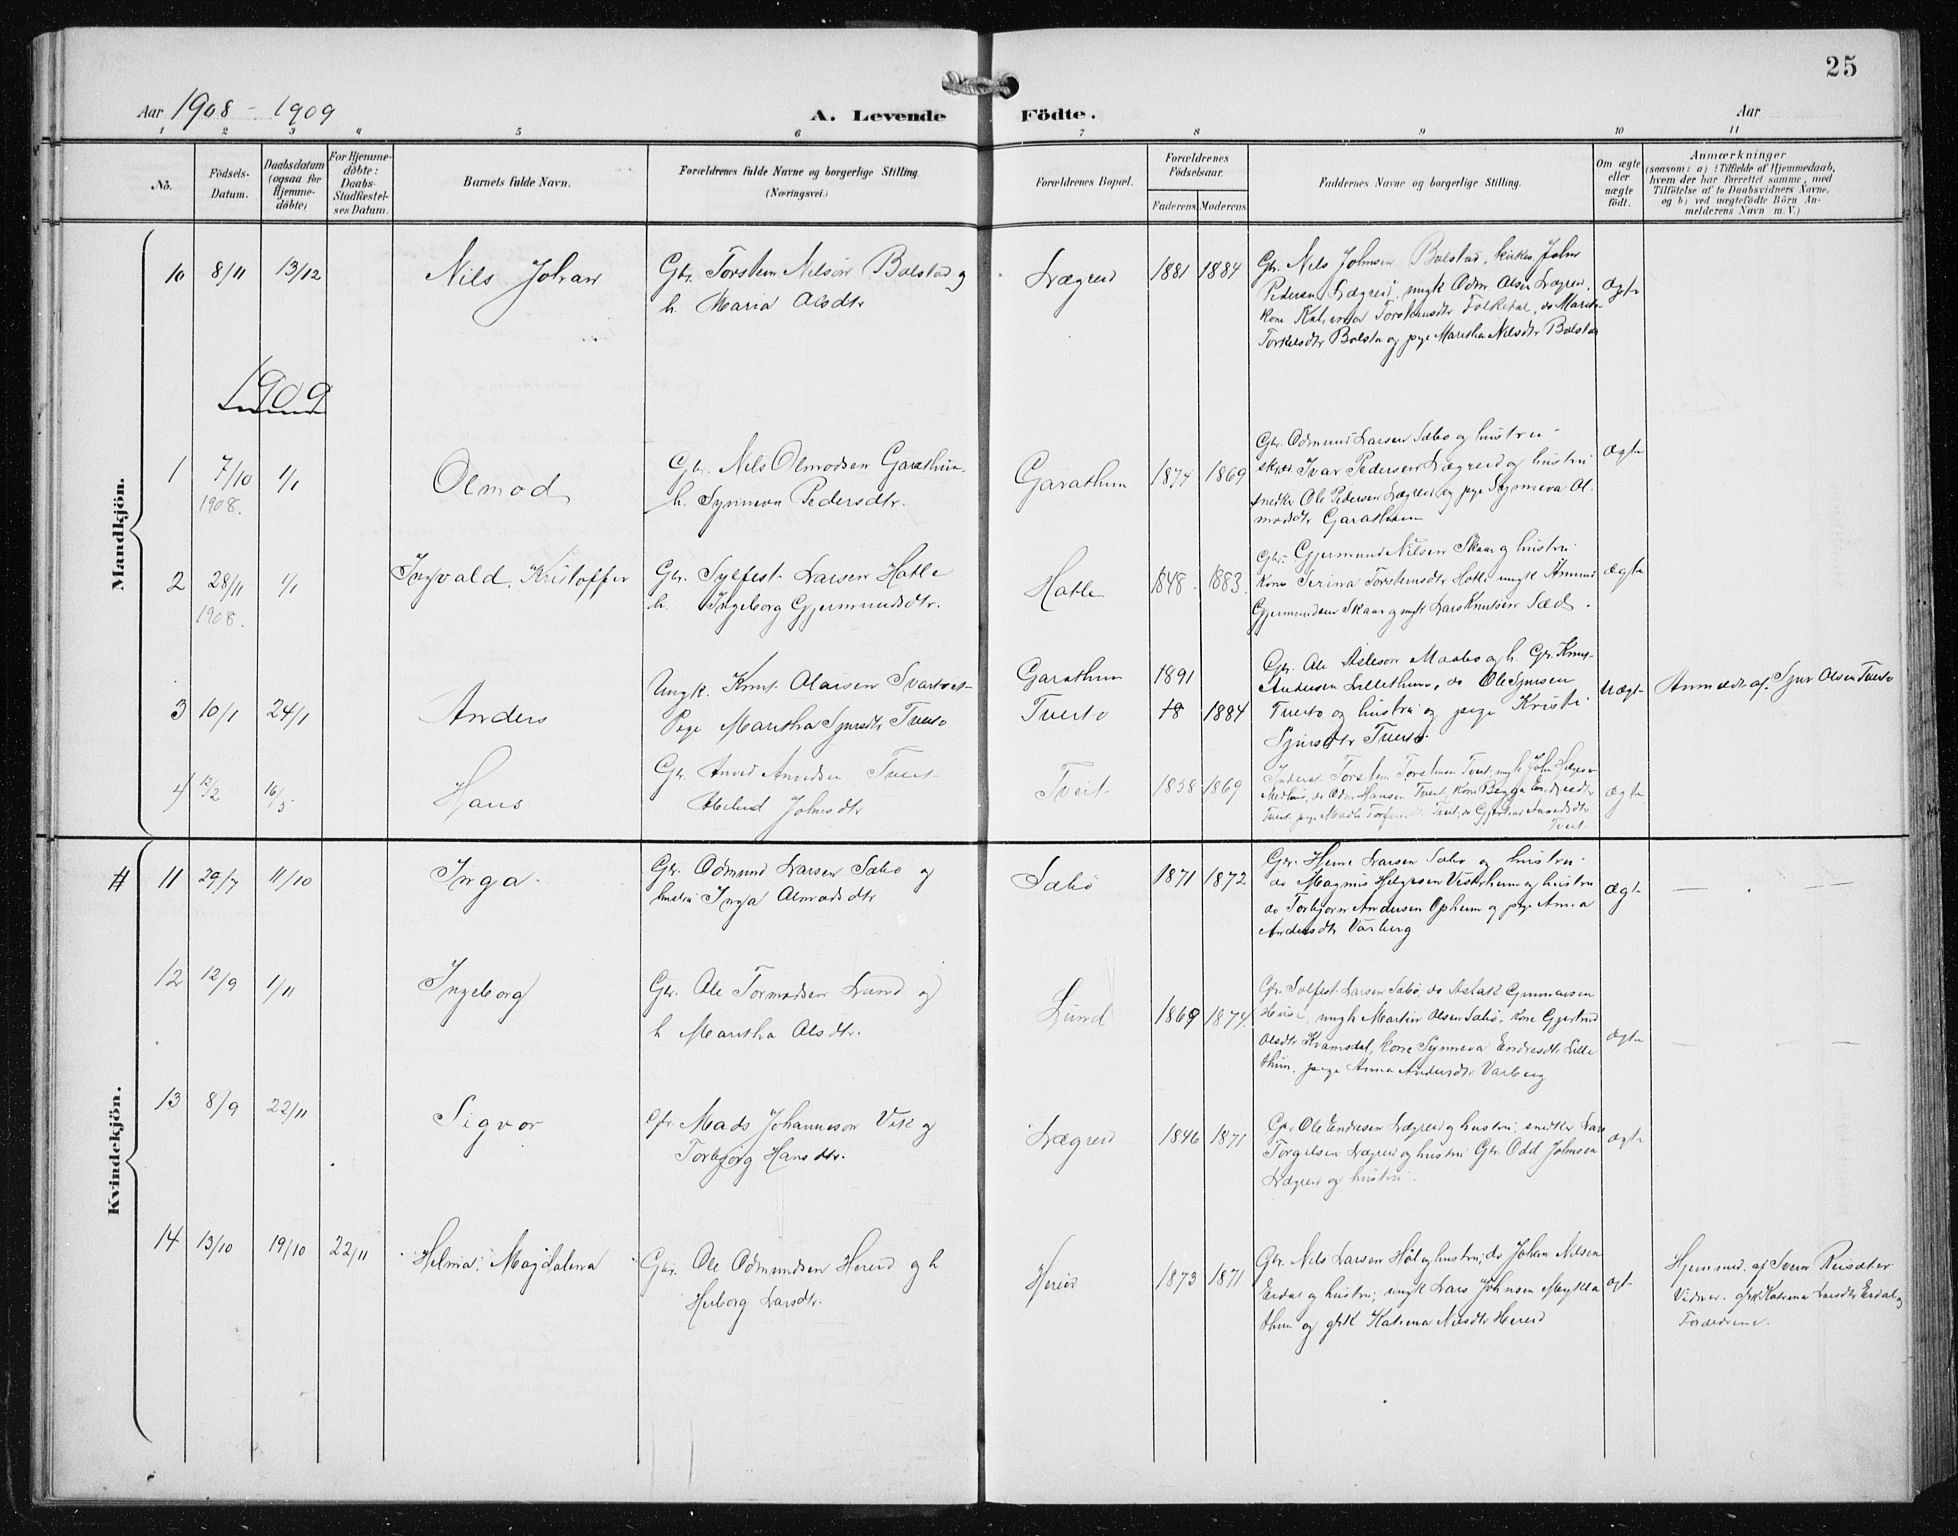 25
Aar 1908 - 1909
A. Levende Födte.
Aar
1 2 3 4 5 6 7 8 9 10 11
No.
Födsels-
Datum.
Daabsdatum
(ogsaa for
Hjemme-
döbte)
For Hjemme-
döbte:
Daabs-
Stadfæstel-
ses Datum.
Barnets fulde Navn.
Forældrenes fulde Navne og borgerlige Stilling.
(Næringsvei.)
Forældrenes Bopæl.
Forældrenes
Födselsaar.
Faderens. Moderens.
Faddernes Navne og borgerlige Stilling.
Om ægte
eller
uægte
födt.
Anmærkninger
(saasom: a) i Tilfælde af Hjemmedaab,
hvem der har forrettet samme, med
Tilföielse af to Daabsvidners Navne,
og b) ved uægtefödte Börn An-
melderens Navn m. V.)
Mandkjön.
10 8/11 13/12
Nils Johan
Gbr. Torstein Nilsen Bolstad og
h. Maria Olsdtr
Lægreid
1881 1884
Gbr. Nils Johnsen Bolstad, kirkes. John
Pedersen Lægreid, ungk Odm Olsen Lægreid,
kone Katrina Torsteinsdtr Folkedal, do Marita
Torkelsdtr Bolsta og pige Maritha Nilsdtr Bolstad
ægte
1909
1 7/10 1908. 1/1
Olmod
Gbr. Nils Olmodsen Garathun
h. Synneva Pedersdtr.
Garathun
1874 1869
Gbr. Odmund Larsen Sæbø og hustru
skræd. Ivar Pedersen Lægreid og hustru
snedker Ole Pedersen Lægreid og pige Synneva Ol-
modsdtr Garathun
ægte
2 28/11 1908. 1/1
Ingvald Kristoffer
Gbr. Sylfest Larsen Hatle
h. Ingeborg Gjermundsdtr.
Hatle
1848. 1883.
Gbr. Gjermund Nilsen Skaar og hustru
kone Serina Torsteinsdtr Hatle ungk Amund
Gjermundsen Skaar og ungk Lars Knutsen Sæd.
ægte
3 10/1 24/1
Anders
Ungk. Knut Olaisen Svartveit
Pige Maritha Sjursdtr Tveito
Garathun
Tveito
1891
18 1884
Gbr. Ole Asleson Maabø og h. Gbr. Knut
Andersen Lillethun, do Ole Sjursen
Tveito og hustru og pige Kristi
Sjursdtr Tveito.
Uægte
Anmeldt af. Sjur Olsen Tveito
4 12/2 16/5
Hans
Gbr. Anved Anvedsen Tveit
Johnsdtr
Tveit
1858 1869
Torstein Torsteinsen Tveit, ungk John
do Odm Hansen Tveit, kone Brygga Endresdtr
Tveit, pige Tveit, do Gjertrud Anvedsdtr
Tveit.
ægte
Kvindekjön.
# 11 29/7 11/10
Inga.
Gbr. Odmund Larsen Sæbø og
hustru Inga Olmodsdtr
Sæbø
1871 1872
Gbr. Heine Larsen Sæbø og hustru
do Magnus Helgesen Vesterheim og hustru
do Torbjørn Andersen Opheim og pige Anna
Andersdtr Varberg
ægte
12 12/9 1/11
Ingeborg
Gbr. Ole Tormodsen Lund og
h Maritha Olsdtr.
Lund
1869 1874.
Gbr. Solfest Larsen Sæbø, do Aslak Gunnarsen
ungk Martin Olsen Sæbø, kone Gjertrud
Olsdtr Kvamsdal, kone Synneva Endresdtr Lille
thun, pige Anna Andersdtr Varberg
ægte
13 8/9 22/11
Sigvor
Gbr. Mads Johannesen Vik og
Torbjørg Hansdtr.
Lægreid
1846 1871
Gbr Ole Endresen Lægreid og hustru, snedker Lars
Torgilsen Lægreid og hustru Gbr. Odd Johnsen
Lægreid og hustru.
ægte
14 13/10 19/10 22/11
Helma Magdalena
Gbr. Ole Odmundsen Hereid og h
Herborg Larsdtr.
Hereid
1873 1871
Gbr. Nils Larsen Høl og hustru, do Johan Nilsen
Erdal og hustru, ungk Lars Johnsen Mykle
thun og Katrina Nilsdtr Hereid
ægt
Hjemmed. af Svein Reisæter
Vidner. Katrina Larsdtr Erdal og
Forældrene.